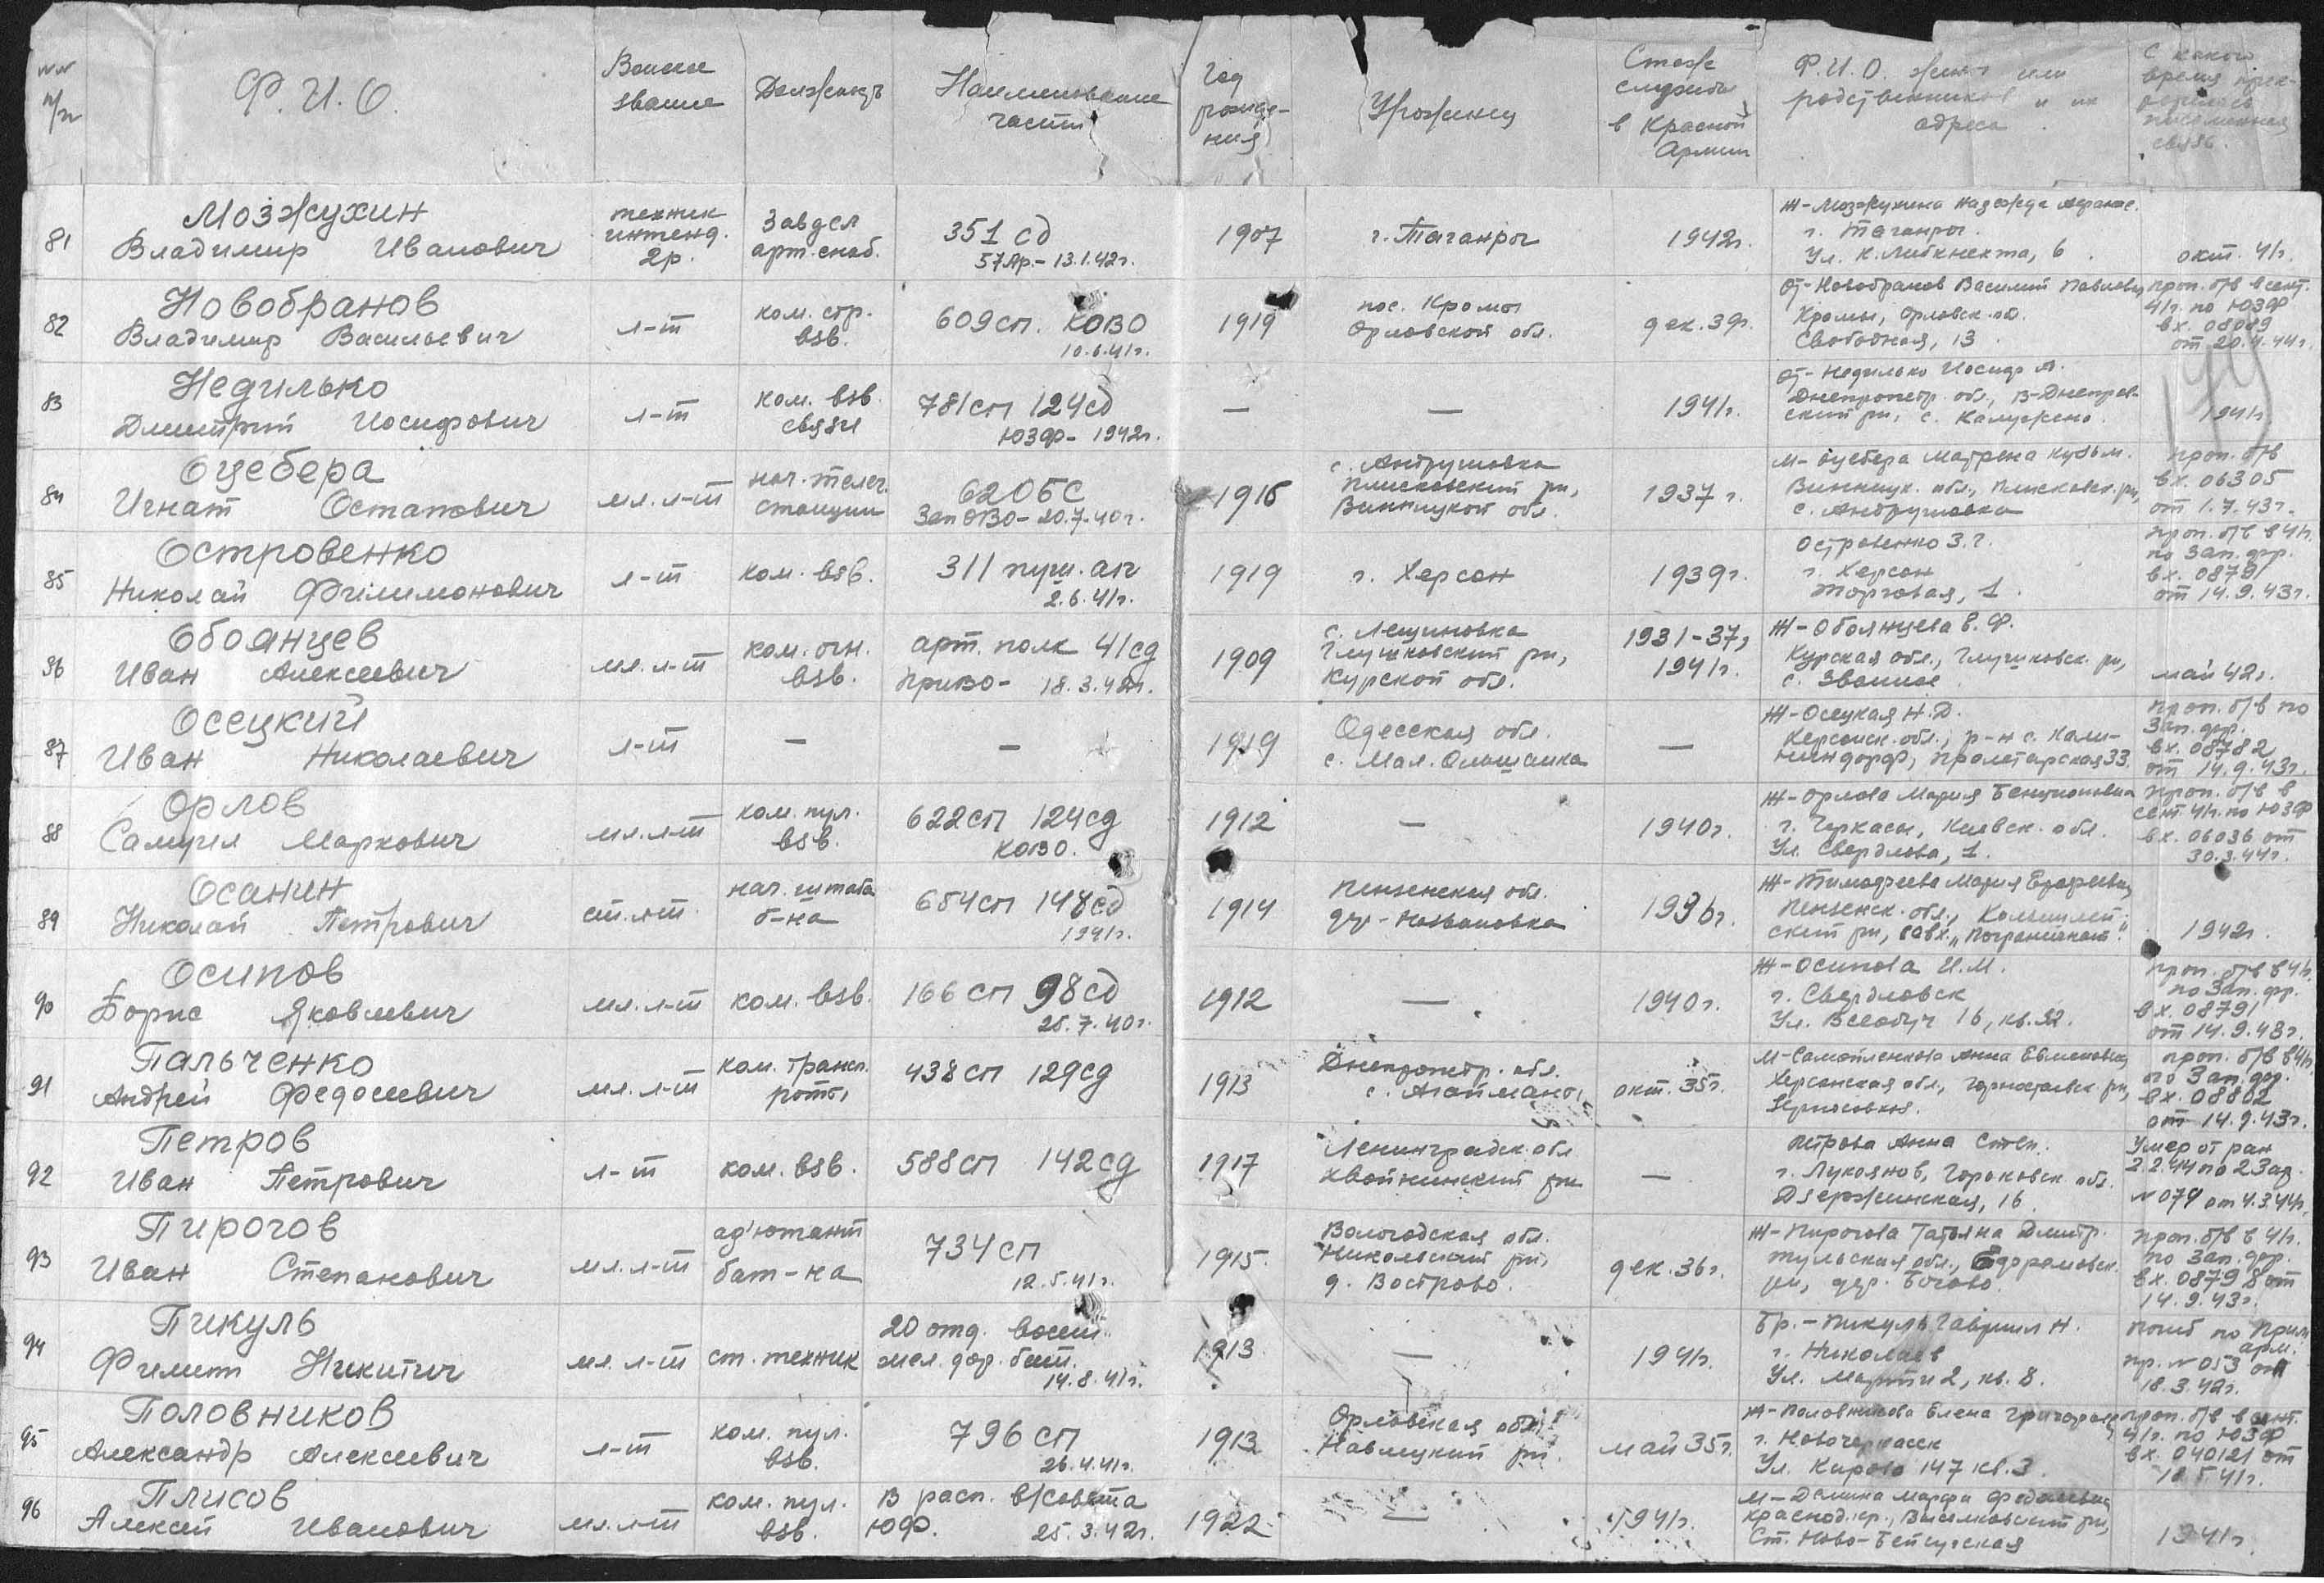 №№ п/п
Ф.И.О.
Воинское звание
Должность
Наименование части
Год рождения
Уроженец
Стаж службы в Красной Армии
Ф.И.О. жены или родственников и их адреса
С какого время прекратилась письменная связь.
81
Мозжухин
Владимир Иванович
техник интенд. 2р.
Завдел арт. снаб.
351 сд
57 Ар. – 13.1.42г.
1907
г. Таганрог
1942г.
Ж – Мозжухина Надежда Афанас.
г. Таганрог.
Ул. К. Либкнехта, 6.
окт. 41г.
82
Новобранов
Владимир Васильевич
л-т
ком. стр. взв.
609 сп. КОВО
10.6.41г.
1919
пос. Кромы
Орловской обл.
дек. 39г.
От – Новобранов Василий Павлович
Кромы, Орловск. об.
Свободная, 13
проп. б/в в сент.
41г. по ЮЗФ
вх. 08089
от 20.4.44г.
83
Недилько
Дмитрий Иосифович
л-т
ком. взв. связи
781 сп 124 сд
ЮЗФ – 1942г.
—
—
1941г.
От – Недилько Иосиф А.
Днепропетр. обл., В-Днепров-
ский рн, с. Калужено.
1941г.
84
Оцебера
Игнат Остапович
мл. л-т
нач. телег. станции
620 БС
Зап ОВО – 20.7.40г.
1916
с. Андрушовка
Плисковский рн,
Винницкой обл.
1937 г.
М – Оцебера Матрена Кузьм.
Винницк. обл., Плисковск. рн,
с. Андрушовка
проп. б/в
вх. 06305
от 1.7.43г.
85
Островенко
Николай Филимонович
л-т
ком. взв.
311 пуш. ап
2.6.41г.
1919
г. Херсон
1939г.
Островенко З.Г.
г. Херсон
Торговая, 1.
проп. б/в в 41г.
по Зап. фр.
вх. 0879
от 14.9.43г.
86
Обоянцев
Иван Алексеевич
мл. л-т
ком. огн. взв.
арт. полк 41 сд
ПриВО – 18.3.42г.
1909
с. Лещиновка
Глушковский рн,
Курской обл.
1931-37, 1941г.
Ж – Обоянцева В. Ф.
Курская обл., Глушковск. рн,
с. Званное
май 42г.
87
Осецкий
Иван Николаевич
л-т
—
—
1919
Одесская обл.
с. Мал. Ольшанка
—
Ж – Осецкая Н.Д.
Херсонск. обл., р-н с. Кали-
ниндорф, Пролетарская 33.
проп. б/в по
Зап. фр.
вх. 08782
от 14.9.43г.
88
Орлов
Самуил Маркович
мл. л-т
ком. пул. взв.
622 сп 124 сд
КОВО.
1912
—
1940г.
Ж – Орлова Мария Бенционовна
г. Черкассы, Киевск. обл.
Ул. Свердлова, 1.
проп. б/в в
сент. 41г. по ЮЗФ
вх. 06036 от
30.3.44г.
89
Осанин
Николай Петрович
ст. л-т
нач. штаба б-на
654 сп 148 сд
1941г.
1914
Пензенская обл.
дер –
1936г.
Ж – Тимофеева Мария
Пензенск. обл., Колышлей-
ский рн, совх. „Пограничник".
1942г.
90
Осипов
Борис Яковлевич
мл. л-т
ком. взв.
166 сп 98 сд
25.7.40г.
1912
—
1940г.
Ж – Осипова И.М.
г. Свердловск
Ул. Всеобуч 16, кв. 32.
проп. б/в в 41г.
по Зап. фр.
вх. 08791
от 14.9.43г.
91
Пальченко
Андрей Федосеевич
мл. л-т
ком. трансп. роты
438 сп 129 сд
1913
Днепропетр. обл.
с. Агайманы,
окт. 35г.
М – Самойленкова Анна
Херсонская обл., Горностаевск. рн,
проп. б/в в 41г.
по Зап. фр.
вх. 08802
от 14.9.43г.
92
Петров
Иван Петрович
л-т
ком. взв.
588 сп 142 сд
1917
Ленинградск. обл
Хвойнинский рн
—
Петрова Анна Степ.
г. Лукоянов, Горьковск. обл.
Дзержинская, 16.
Умер от ран
2.2.44 по 2 Уд.
№ 074 от 4.3.44г.
93
Пирогов
Иван Степанович
мл. л-т
ад'ютант бат-на
734 сп
12.5.41г.
1915.
Вологодская обл.
Никольский рн,
д. Вострово.
дек. 36г.
Ж – Пирогова Татьяна Дмитр.
Тульская обл.,
рн, дер.
проп. б/в в 41г.
по Зап. фр.
вх. 08798 от
14.9.43г.
94
Пикуль
Филипп Никитич
мл. л-т
ст. техник
20 отд. восст.
жел. дор. бат.
14.8.41г.
1913
—
1941г.
Бр. – Пикуль Гавриил Н.
г. Николаев
Ул. Марти 2, кв. 8.
погиб по Прим
арм.
пр. № 053 от
18.3.42г.
95
Половников
Александр Алексеевич
л-т
ком. пул. взв.
796 сп
26.4.41г.
1913
Орловская обл.
Навлицкий рн.
май 35г.
Ж – Половникова Елена Григорьев
г. Новочеркасск
Ул. Кирова 147 кв. 3.
проп. б/в в сент.
41г. по ЮЗФ
вх. 040121 от
41г.
96
Плисов
Алексей Иванович
мл. л-т
ком. пул. взв.
В расп. в/совета
ЮФ. 25.3.42г.
1922
—
1941г.
М – Демина Марфа
Краснод. кр., Выселковский рн,
Ст. Ново-Бейсугская
1941г.